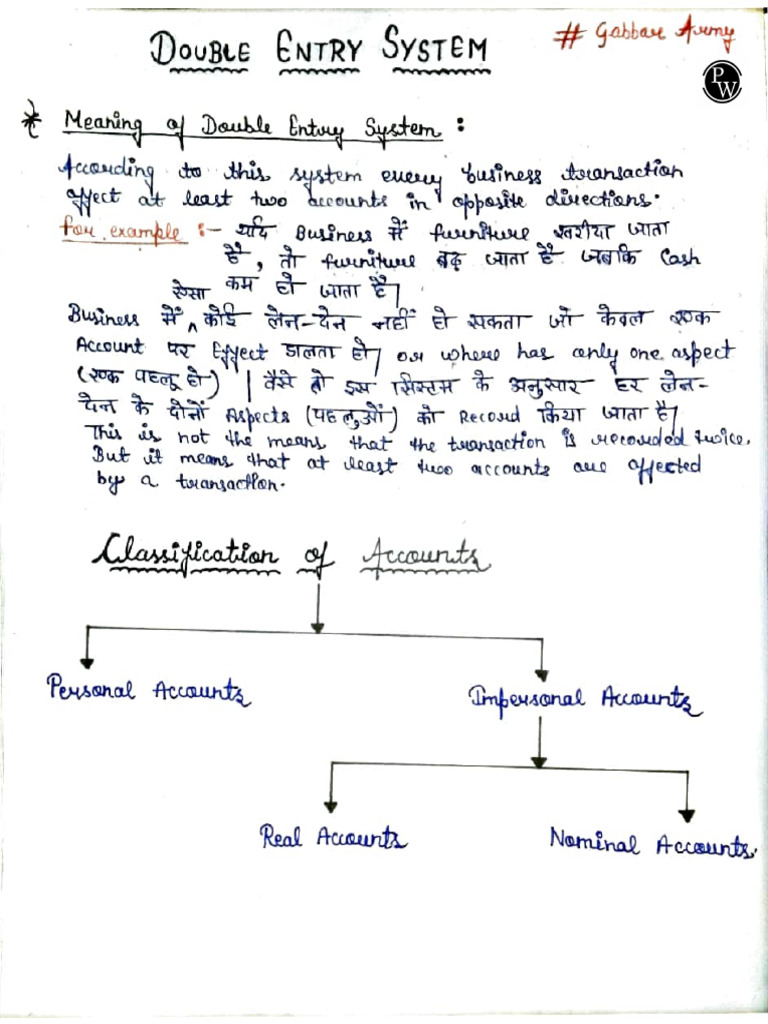 DOUBLE ENTRY SYSTEM
# Gabbar Army
PW
* Meaning of Double Entry System :
According to this system every business transaction
affect at least two accounts in opposite directions.
for example :- यदि Business में furniture खरीदा जाता
है, तो furniture बढ़ जाता है जबकि Cash
कम हो जाता है।
Business में ^ ऐसा कोई लेन-देन नहीं हो सकता जो केवल एक
Account पर Effect डालता हो। or where has only one aspect
(एक पहलू हो) । वैसे तो इस सिस्टम के अनुसार हर लेन-
देन के दोनों Aspects (पहलुओं) को Record किया जाता है।
This is not the means that the transaction is recorded twice.
But it means that at least two accounts are affected
by a transaction.
Classification of Accounts
Personal Accounts
Impersonal Accounts
Real Accounts
Nominal Accounts.